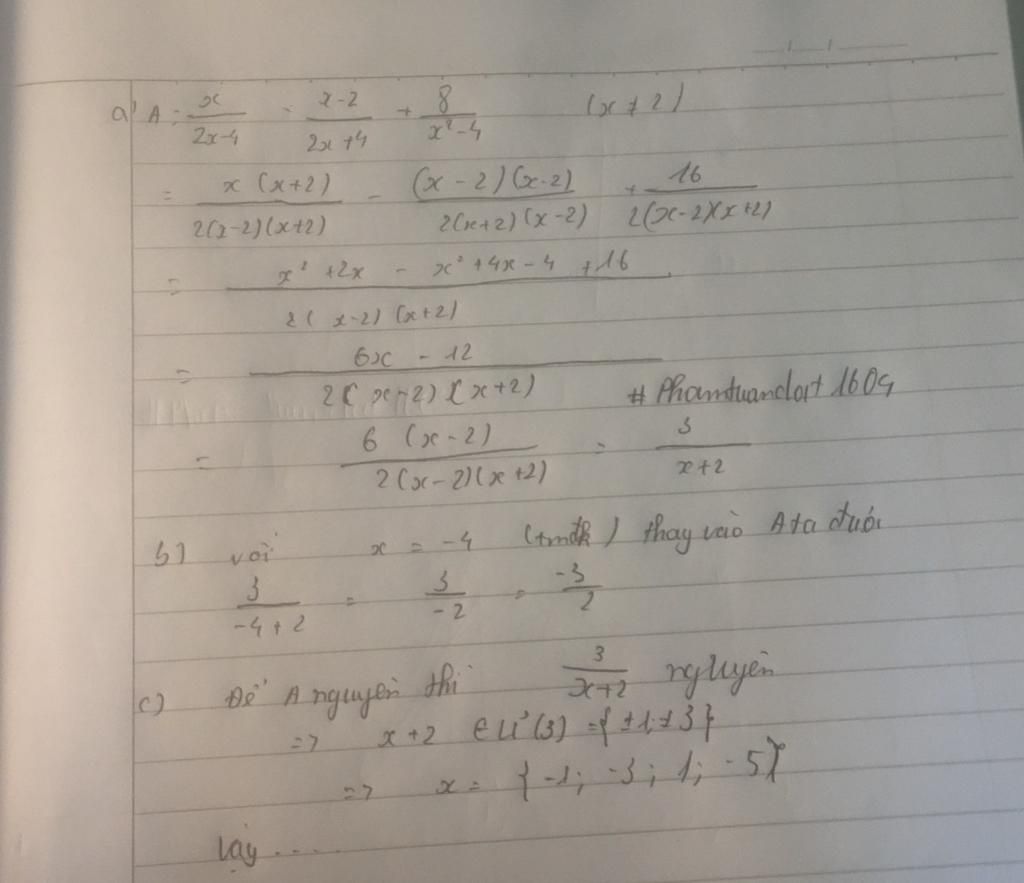 a) A = x/(2x-4) - (x-2)/(2x+4) + 8/(x²-4) (x ≠ 2)
= x(x+2)/(2(x-2)(x+2)) - (x-2)(x-2)/(2(x+2)(x-2)) + 16/(2(x-2)(x+2))
= (x² + 2x - x² + 4x - 4 + 16)/(2(x-2)(x+2))
= (6x - 12)/(2(x-2)(x+2))
# Phamtuandat1604
= 6(x-2)/(2(x-2)(x+2)) = 3/(x+2)
b) với x = -4 (tmđk) thay vào A ta được
3/(-4+2) = 3/(-2) = -3/2
c) Để A nguyên thì 3/(x+2) nguyên
=> x+2 ∈ Ư(3) = {±1; ±3}
=> x = {-1; -3; 1; -5}
Vậy ....